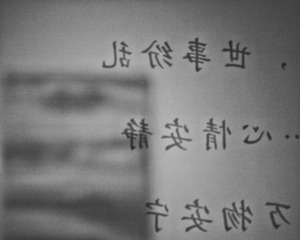 ，世事纷乱
..心情安静
万物安宁